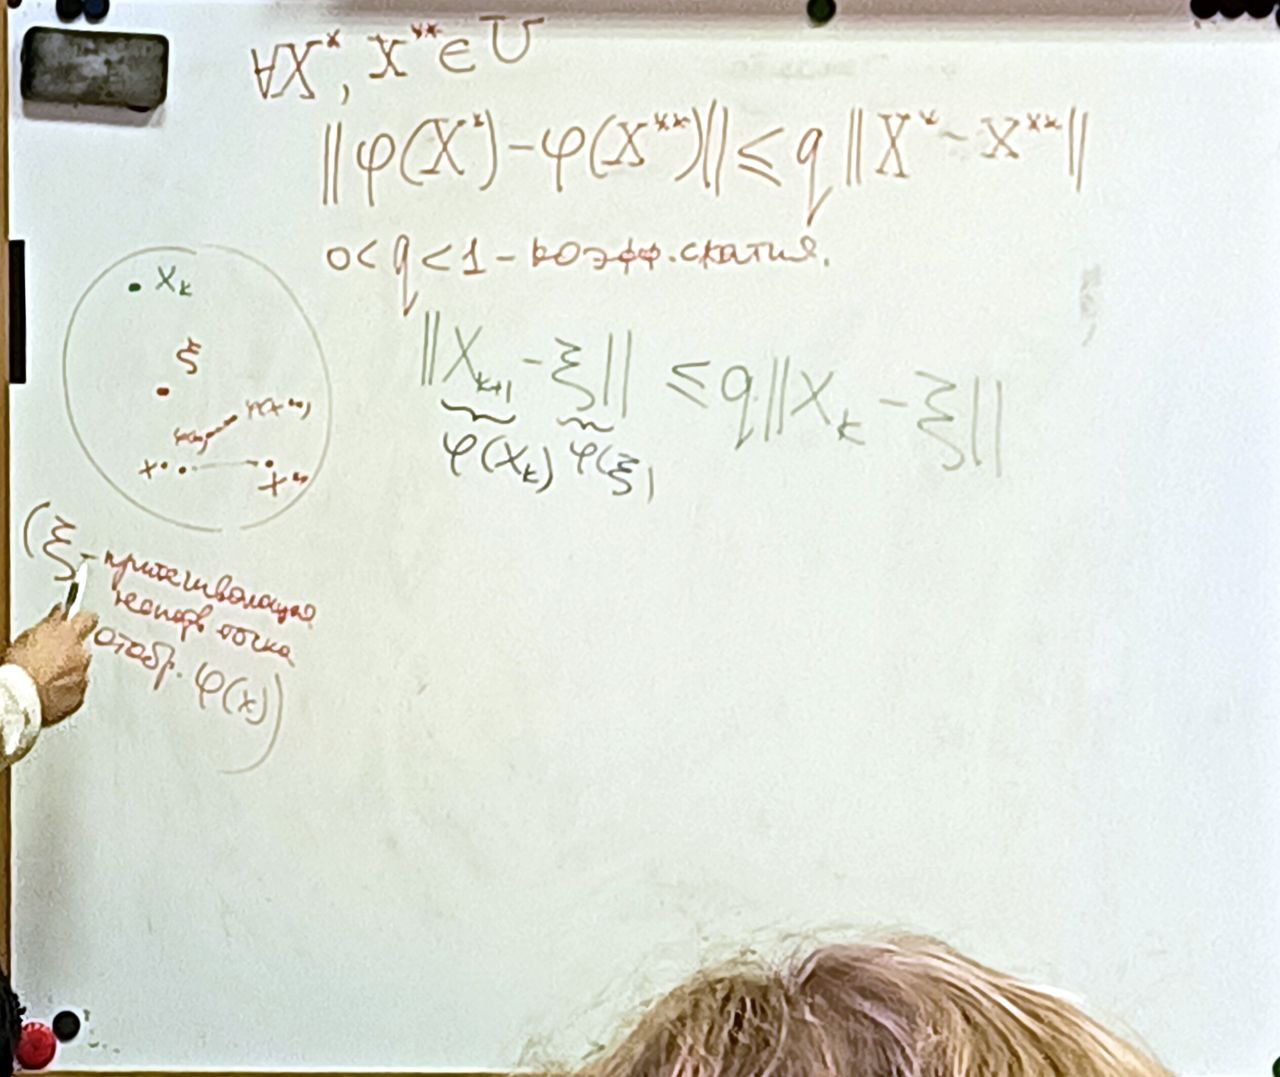 ∀X*, X** ∈ U
||φ(X*) − φ(X**)|| ≤ q ||X* − X**||
0 < q < 1 − коэфф. сжатия.
||X_{k+1} − ξ|| ≤ q||X_k − ξ||
φ(X_k) φ(ξ)
X_k
ξ
φ(x*) φ(x**)
X* X**
(ξ − притягивающая
непод. точка
отобр. φ(x))